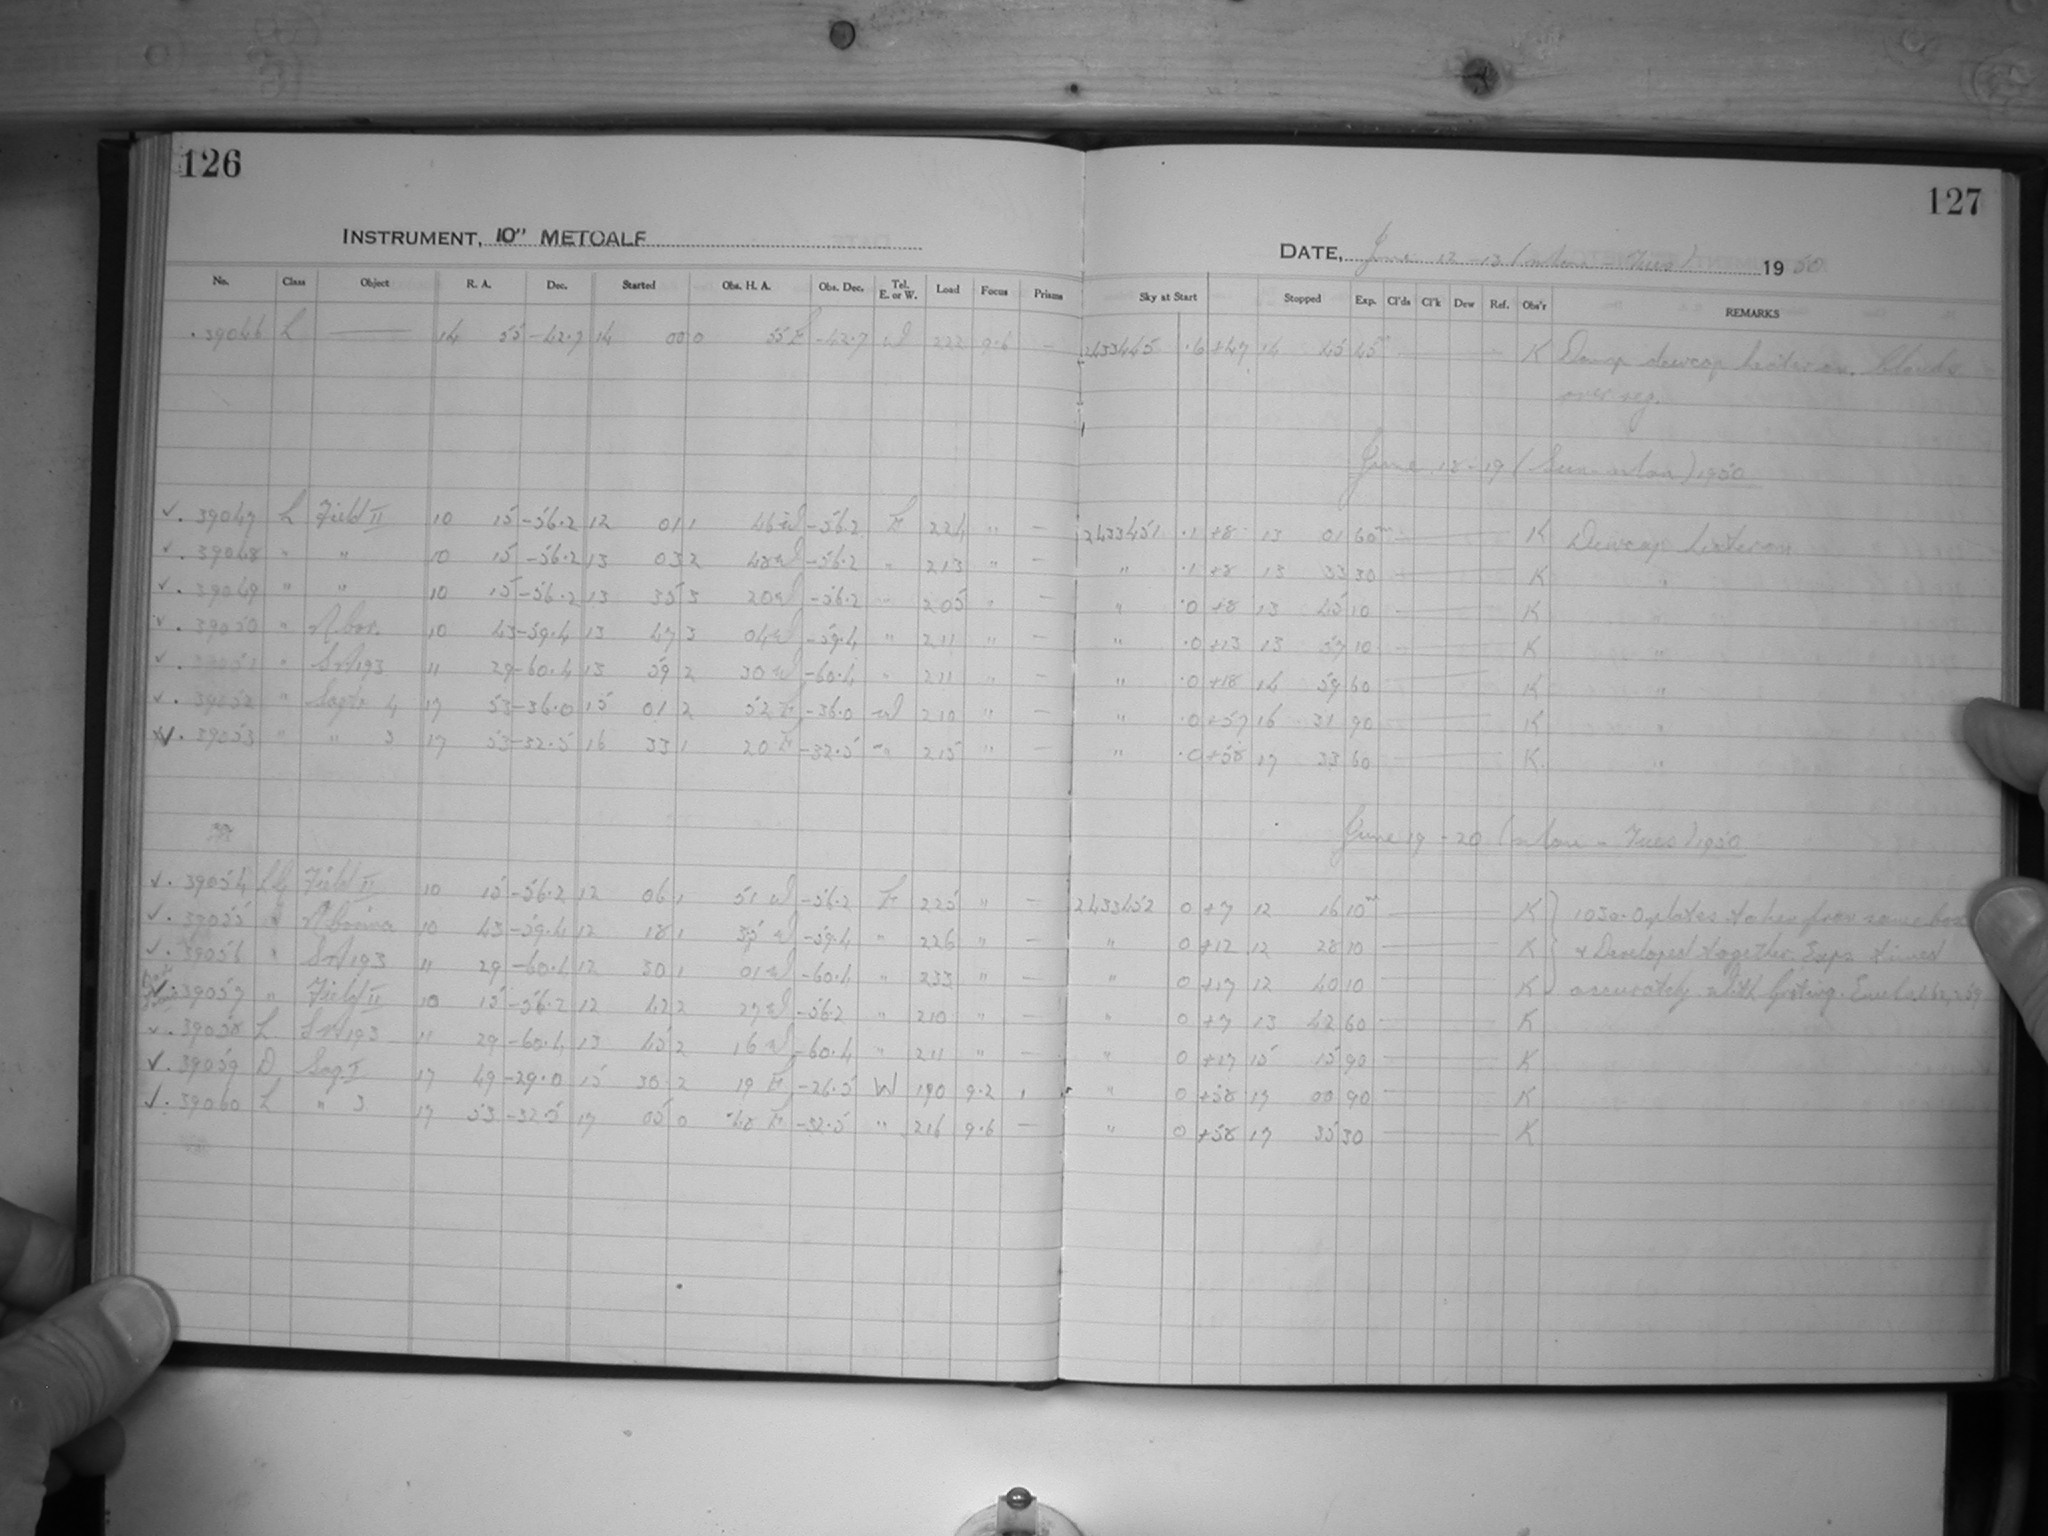 126
127
INSTRUMENT, 10" METCALF
DATE, June 12-13 (Mon - Tues) 1950
No. Class Object R. A. Dec. Started Obs. H. A. Obs. Dec. Tel. E. or W. Load Focus Prisms Sky at Start Stopped Exp. Cl'ds Cl'k Dew Ref. Obs'r REMARKS
. 39046 L — 14 55 -42.7 14 00 0 55 E -42.7 W 222 9.6 — 2433445 .6 +47 14 45 45m — K Damp dewcap heater on. Clouds
over reg.
June 18-19 (Sun-Mon) 1950
✓. 39047 L Field II 10 15 -56.2 12 01 1 46 W -56.2 E 224 " — 2433451 .1 +8 13 01 60m — K Dewcap heater on
✓. 39048 " " 10 15 -56.2 13 03 2 48 W -56.2 " 213 " — " .1 +8 13 33 30 — K "
✓. 39049 " " 10 15 -56.2 13 35 3 20 W -56.2 " 205 " — " .0 +8 13 45 10 — K
✓. 39050 " η Car. 10 43 -59.4 13 47 3 04 W -59.4 " 211 " — " .0 +13 13 57 10 — K "
✓. 39051 " SA 193 11 29 -60.4 13 59 2 30 W -60.4 " 211 " — " .0 +18 14 59 60 — K "
✓. 39052 " Sagtr 4 17 53 -36.0 15 01 2 52 E -36.0 W 210 " — " .0 +57 16 31 90 — K "
✓. 39053 " " 3 17 53 -32.5 16 33 1 20 E -32.5 " 215 " — " .0 +58 17 33 60 — K. "
June 19-20 (Mon - Tues) 1950
✓. 39054 LG Field II 10 15 -56.2 12 06 1 51 W -56.2 E 225 " — 2433452 0 +7 12 16 10m — K 103a-O plates taken from same box
✓. 39055 " η Carina 10 43 -59.4 12 18 1 35 W -59.4 " 226 " — " 0 +12 12 28 10 — K & Developed together. Exps timed
✓. 39056 " SA 193 11 29 -60.4 12 30 1 01 W -60.4 " 233 " — " 0 +17 12 40 10 — K accurately with Grating.
✓. 39057 " Field II 10 15 -56.2 12 42 2 27 W -56.2 " 210 " — " 0 +7 13 42 60 — K
✓. 39058 L SA 193 11 29 -60.4 13 45 2 16 W -60.4 " 211 " — " 0 +17 15 15 90 — K
✓. 39059 D Sag I 17 49 -29.0 15 30 2 19 E -26.5 W 190 9.2 " 0 +58 17 00 90 — K
✓. 39060 L " 3 17 53 -32.5 17 05 0 48 E -32.5 " 216 9.6 — " 0 +58 17 35 30 — K